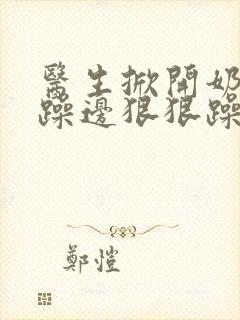 醫生掀開奶
躁邊狠狠躁
鄭愷